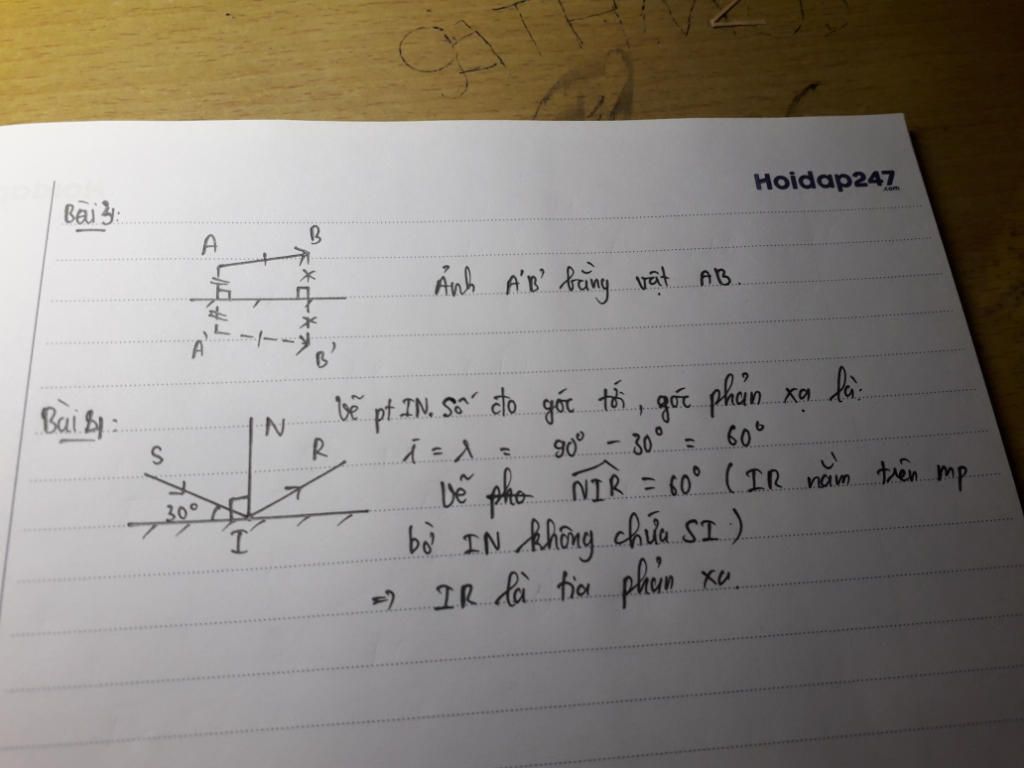 Hoidap247
.com
Bài 3:
A B
Ảnh A'B' bằng vật AB.
A' B'
Vẽ pt IN. Số đo góc tới, góc phản xạ là:
Bài 4:
S N R
i = r = 90° - 30° = 60°
Vẽ NIR = 60° (IR nằm trên mp
30°
I
bờ IN không chứa SI)
=> IR là tia phản xạ.